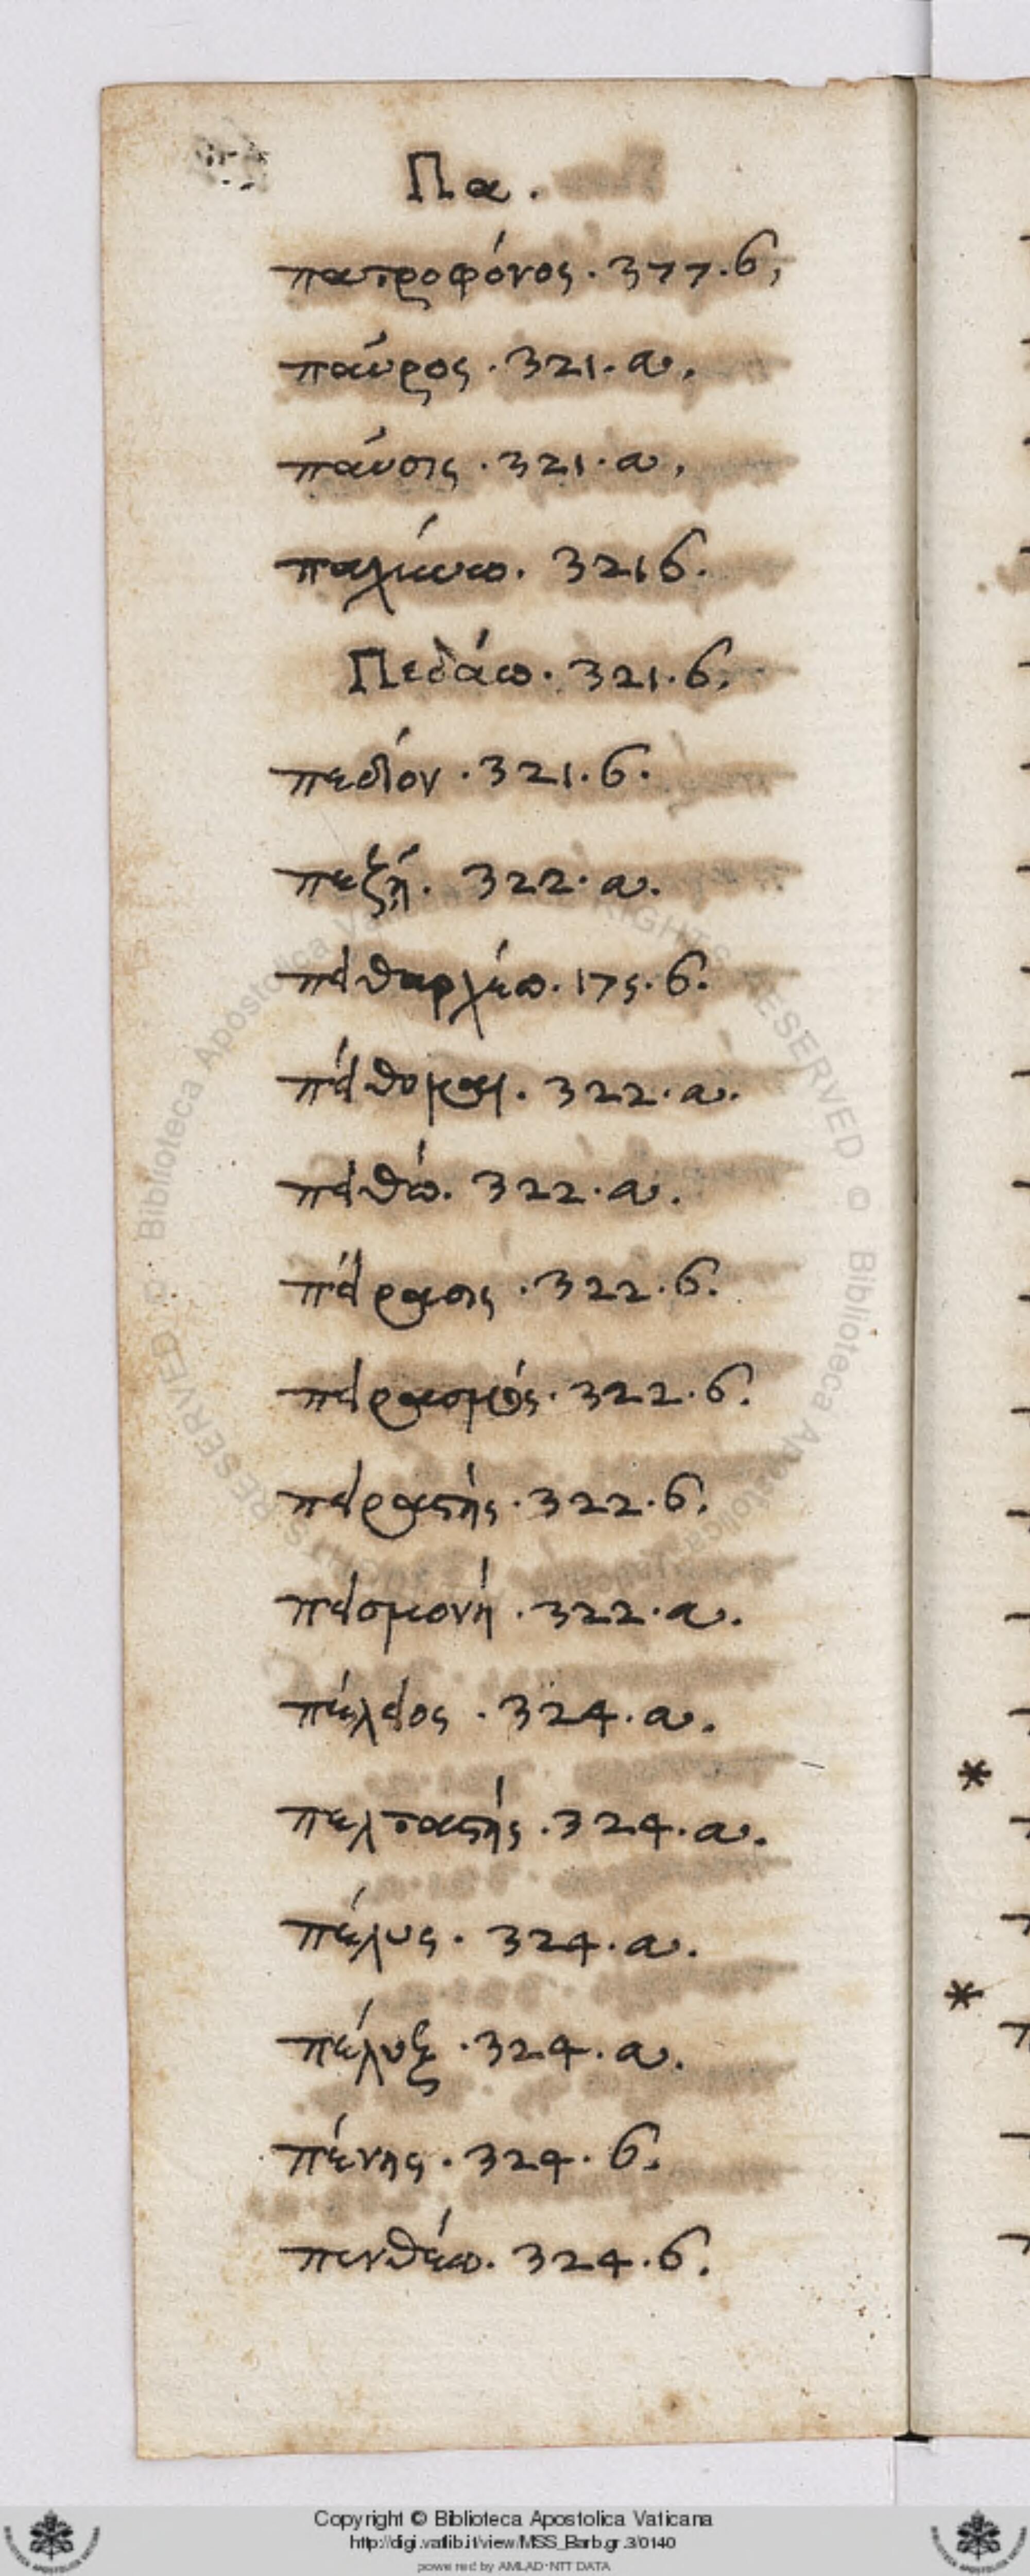 Πα.
πατροφόνος. 377. б.
πάυρος. 321. α.
πάυσις. 321. α.
321 б.
Πεδάω. 321. б.
πεδίον. 321. б.
πεζῇ. 322. α.
πειθαρχέω. 175. б.
πείθομαι. 322. α.
πειθώ. 322. α.
πείρασις. 322. б.
πειρασμός. 322. б.
πειραστής. 322. б.
πεισμονή. 322. α.
πέλειος. 324. α.
πελταστής. 324. α.
πέλυς. 324. α.
πέλυξ. 324. α.
πένης. 324. б.
πενθέω. 324. б.
Copyright © Biblioteca Apostolica Vaticana
http://digi.vatlib.it/view/MSS_Barb.gr.3/0140
powered by AMLAD-NTT DATA